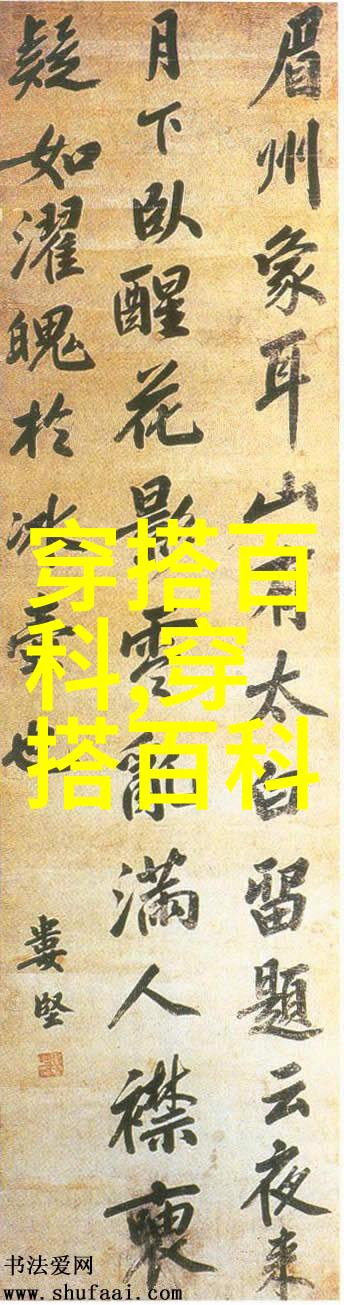 眉州象耳山有太白留題云夜来
月下臥醒花影零亂滿人襟
疑如濯魄於冰雪也
婁堅
穿搭百
科,穿
搭百科
书法爱网
www.shufaai.com